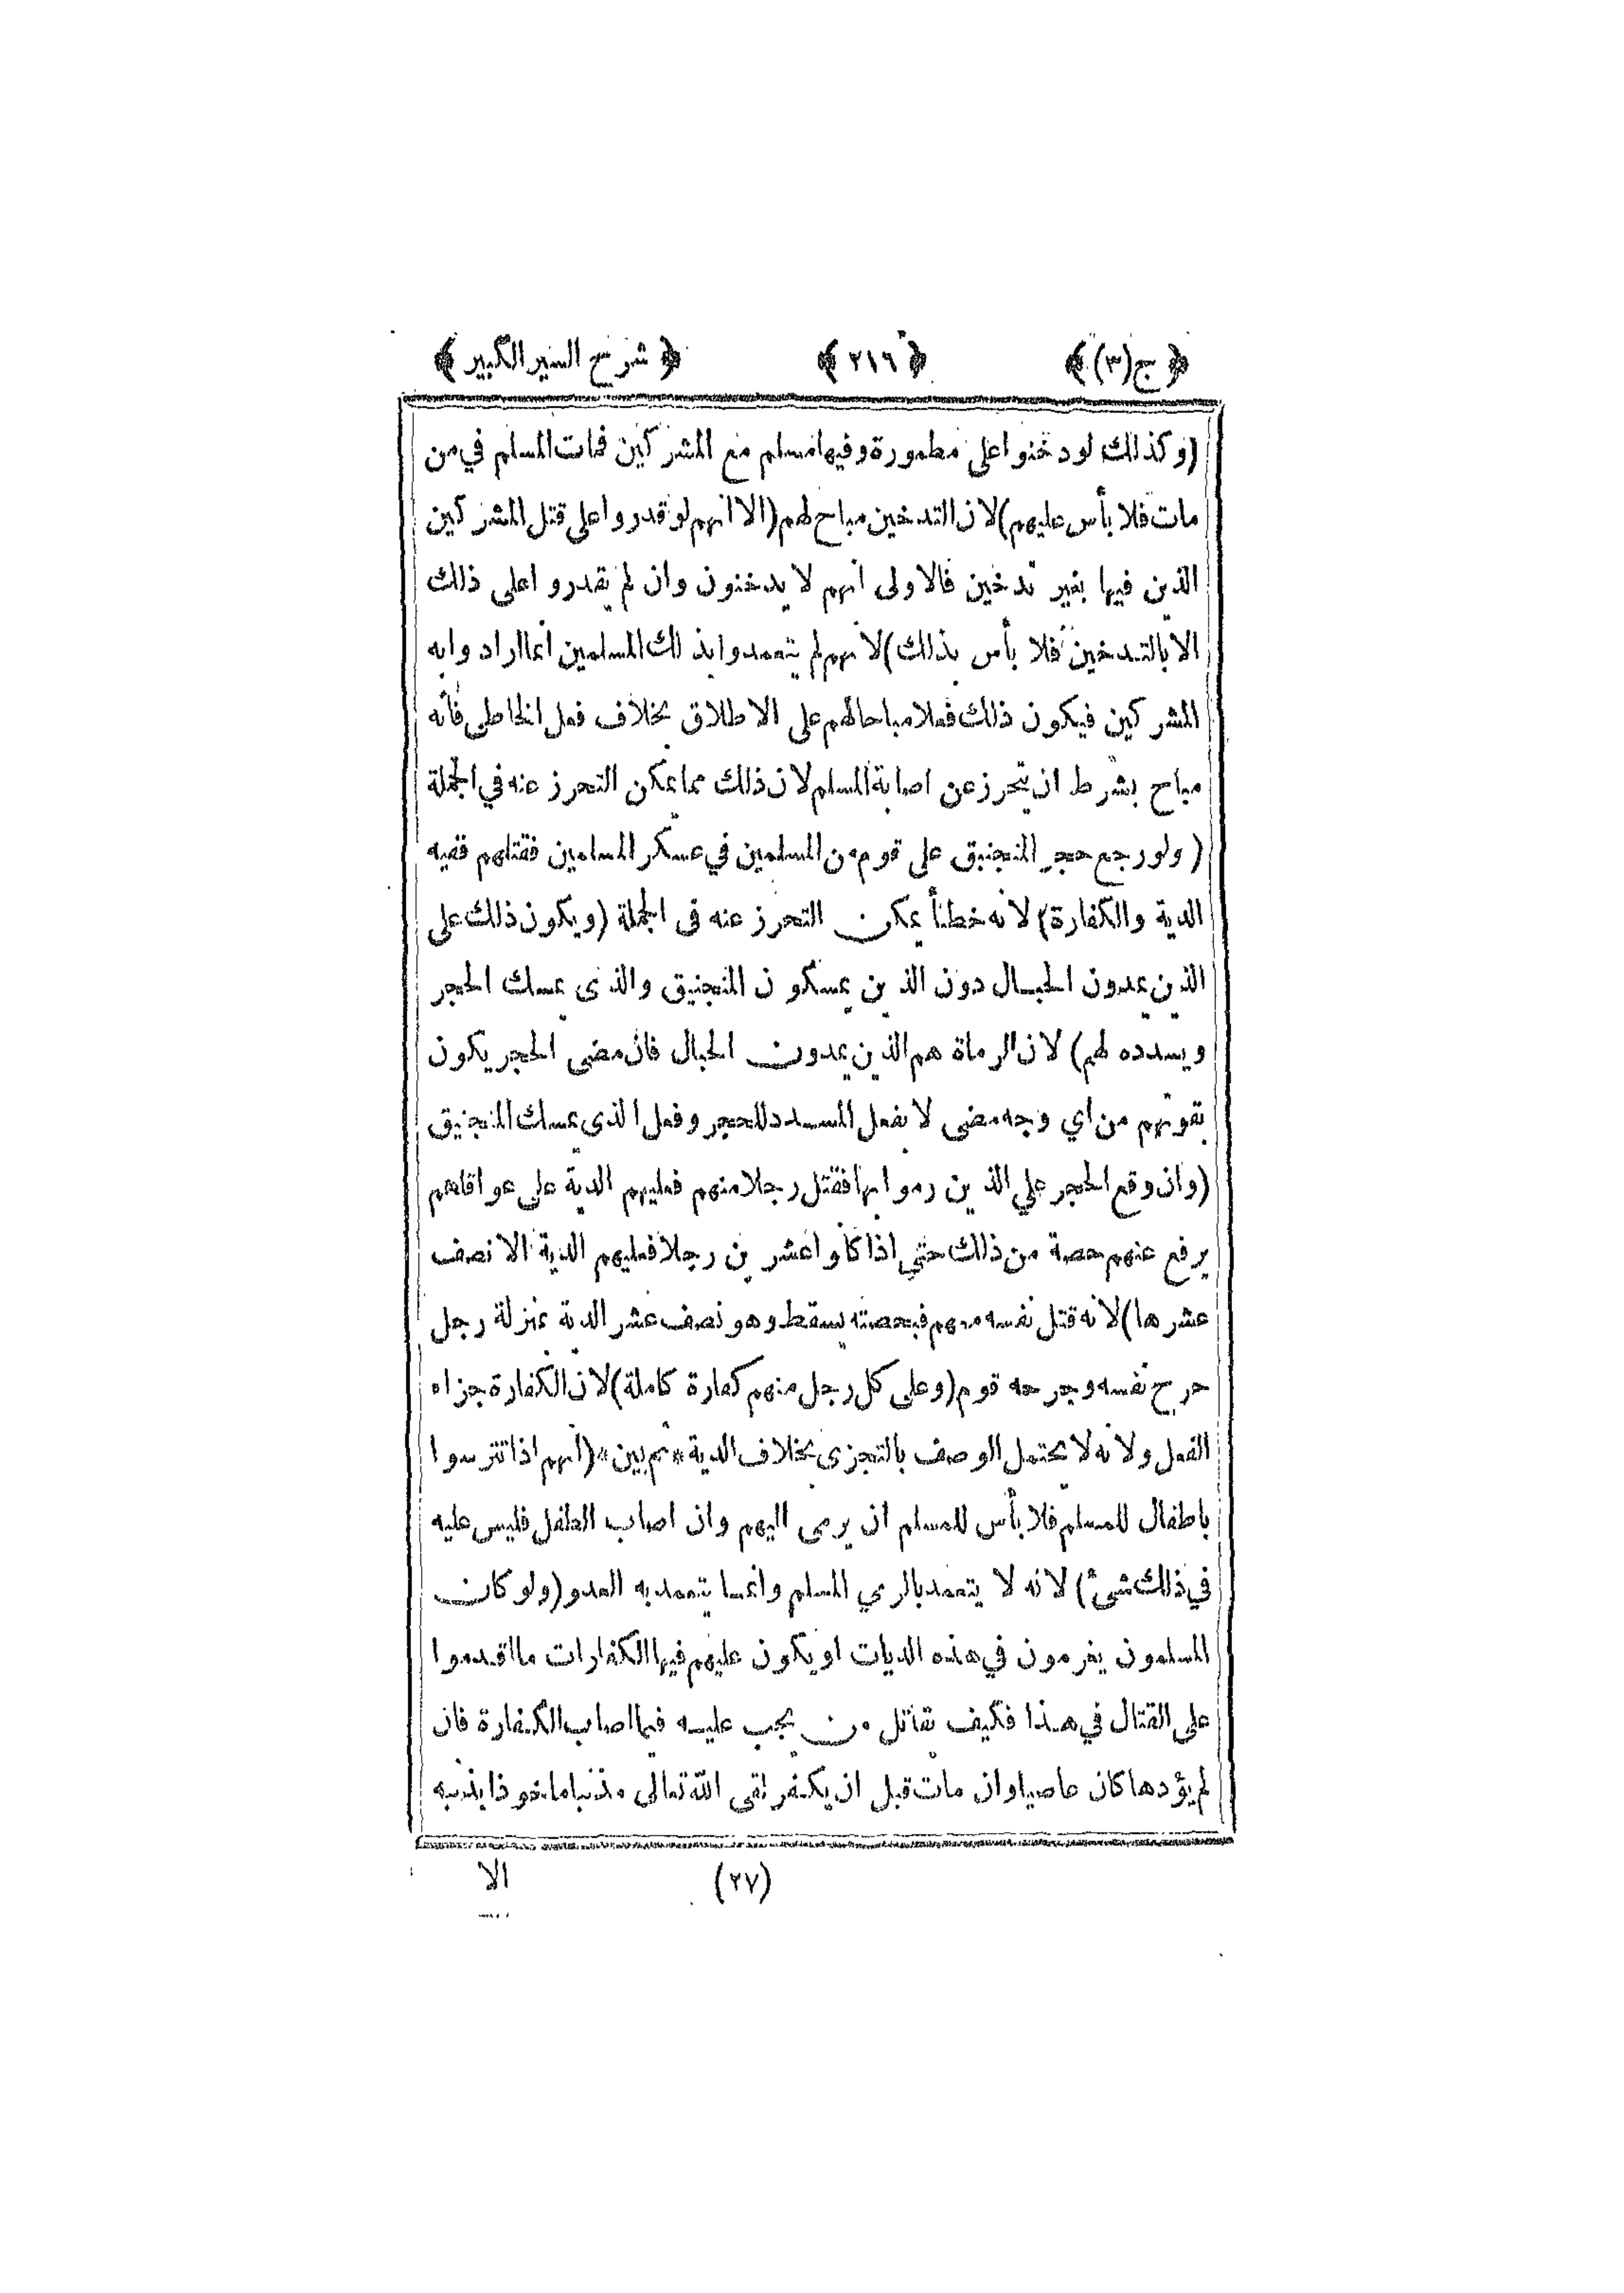 ﴿ ج(٣) ﴾ ﴿ ٢١٦ ﴾ ﴿ شرح السير الكبير ﴾
(وكذلك لو دخنوا على مطمورة وفيها مسلم مع المشركين فمات المسلم في من
مات فلا بأس عليهم) لان التدخين مباح لهم (الا انهم لو قدروا على قتل المشركين
الذين فيها بغير تدخين فالاولى انهم لا يدخنون وان لم يقدروا على ذلك
الا بالتدخين فلا بأس بذلك) لانهم لم يتعمدوا بذلك المسلمين انما ارادوا به
المشركين فيكون ذلك فعلا مباحا لهم على الاطلاق بخلاف فعل الخاطى فانه
مباح بشرط ان يتحرز عن اصابة المسلم لان ذلك مما يمكن التحرز عنه في الجملة
(ولو رجع حجر المنجنيق على قوم من المسلمين في عسكر المسلمين فقتلهم ففيه
الدية والكفارة) لانه خطأ يمكن التحرز عنه فى الجملة (ويكون ذلك على
الذين يمدون الحبال دون الذين يمسكون المنجنيق والذى يمسك الحجر
ويسدده لهم) لان الرماة هم الذين يمدون الحبال فان مضى الحجر يكون
بقوتهم من اي وجه مضى لا بفعل المسدد للحجر وفعل الذى يمسك المنجنيق
(وان وقع الحجر علي الذين رموا بها فقتل رجلا منهم فعليهم الدية على عواقلهم
يرفع عنهم حصة من ذلك حتي اذا كانوا عشرين رجلا فعليهم الدية الا نصف
عشرها) لانه قتل نفسه معهم فبحصته يسقط وهو نصف عشر الدية بمنزلة رجل
جرح نفسه وجرحه قوم (وعلى كل رجل منهم كفارة كاملة) لان الكفارة جزاء
الفعل ولانه لا يحتمل الوصف بالتجزى بخلاف الدية * ثم بين * (انهم اذا تترسوا
باطفال للمسلم فلا بأس للمسلم ان يرمى اليهم وان اصاب الطفل فليس عليه
في ذلك شىٔ) لانه لا يتعمد بالرمي المسلم وانما يتعمد به العدو (ولو كان
المسلمون يغرمون في هذه الديات او يكون عليهم فيها الكفارات ما اقدموا
على القتال في هذا فكيف يقاتل من يجب عليه فيما اصاب الكفارة فان
لم يؤدها كان عاصيا وان مات قبل ان يكفر لقى الله تعالى مذنبا ماخوذا بذنبه
(٢٧) الا